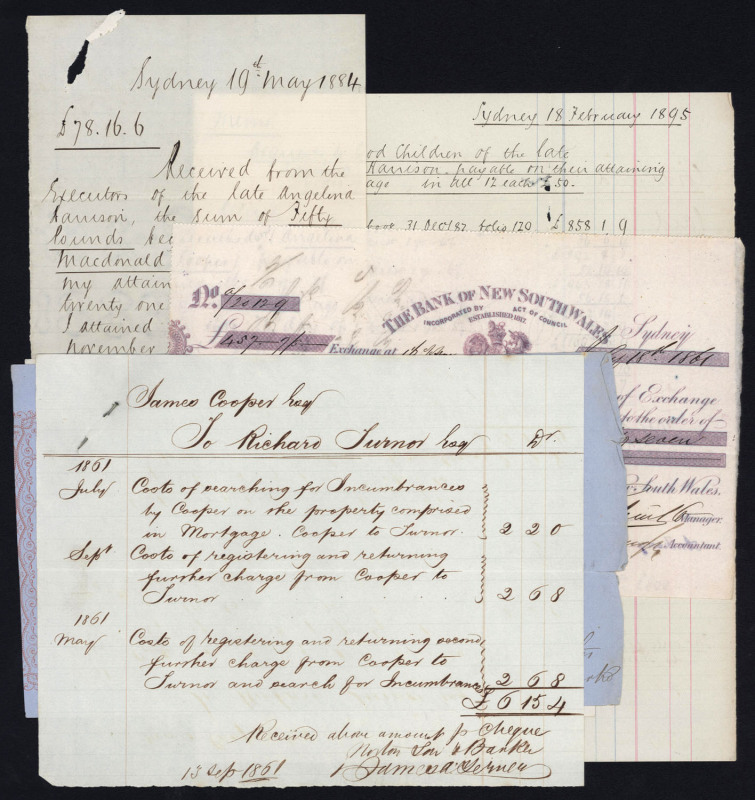 Sydney 19th May 1884
£78.16.6
Received from the
Executors of the late Angelina
Harrison, the sum of Fifty
Pounds
Macdonald
my attain
twenty one
I attained
November
Sydney 18 February 1895
od Children of the late
Harrison, payable on their attaining
age in all 12 each £50.
31 Dec 87 folio 120 £858 1 9
No.
THE BANK OF NEW SOUTH WALES
INCORPORATED BY ACT OF COUNCIL
ESTABLISHED 1817.
Sydney
1861
£457
Exchange at
of Exchange
to the order of
Seven
South Wales.
Manager.
Accountant.
James Cooper Esq
To Richard Turnor Esq Dr.
1861
July Costs of searching for Incumbrances
by Cooper on the property comprised
in Mortgage. Cooper to Turnor. 2 2 0
Sept Costs of registering and returning
further charge from Cooper to
Turnor 2 6 8
1861
May Costs of registering and returning second
further charge from Cooper to
Turnor and search for Incumbrances 2 6 8
£ 6 15 4
Received above amount p cheque
Norton Son & Barker
13 Sep 1861